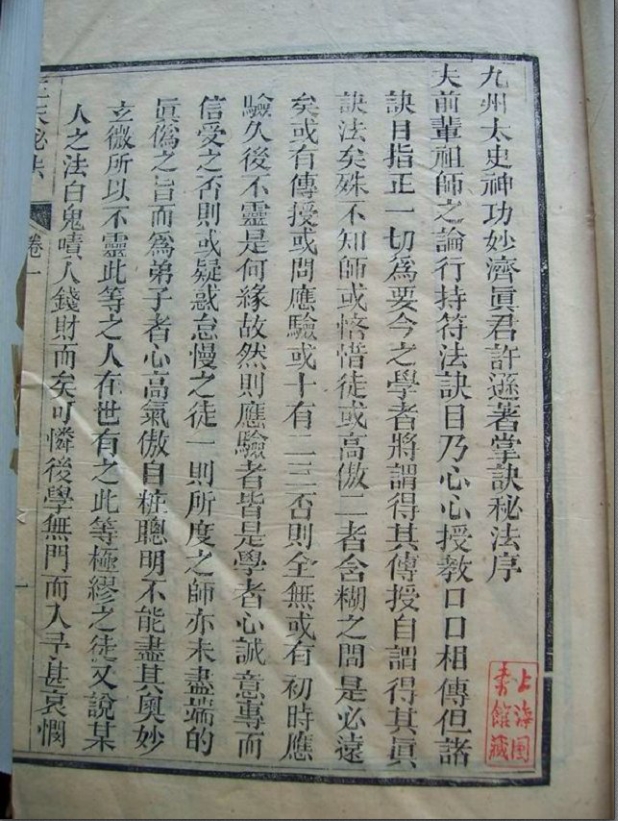 九州太史神功妙濟眞君許遜著掌訣秘法序
夫前輩祖師之論行持符法訣目乃心心授教口口相傳但諸
訣目指正一切爲要今之學者將謂得其傳授自謂得其眞
訣法矣殊不知師或悋惜徒或高傲二者含糊之間是必遠
矣或有傳授或問應驗或十有二三否則全無或有初時應
驗久後不靈是何緣故然則應驗者皆是學者心誠意專而
信受之否則或疑惑怠慢之徒一則所度之師亦未盡端的
眞僞之旨而爲弟子者心高氣傲自粧聰明不能盡其奧妙
玄微所以不靈此等之人在世有之此等極繆之徒又說某
人之法白鬼嘖人錢財而矣可憐後學無門而入予甚哀憫
秘法
卷一
上海圖
書館藏